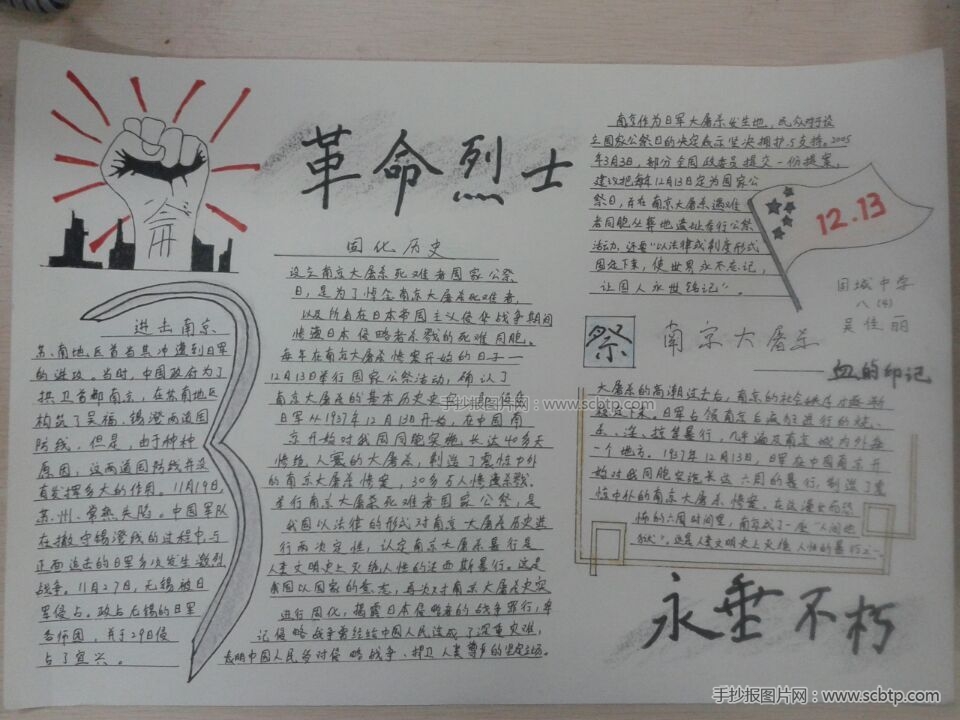 革命烈士
命
进击南京
苏南地区首当其冲遭到日军
的进攻。当时，中国政府为了
拱卫首都南京，在苏南地区
构筑了吴福、锡澄两道国
防线。但是，由于种种
原因，这两道国防线并没
有发挥多大的作用。11月19日，
苏州、常熟失陷。中国军队
在撤守锡澄线的过程中与
正面追击的日军多次发生激烈
战争。11月27日，无锡被日
军侵占。攻占无锡的日军
各师团，并于29日侵
占了宜兴。
固化历史
设立南京大屠杀死难者国家公祭
日，是为了悼念南京大屠杀死难者，
以及所有在日本帝国主义侵华战争期间
惨遭日本侵略者杀戮的死难同胞。
每年在南京大屠杀惨案开始的日子一
12月13日举行国家公祭活动，确认了
南京大屠杀的基本历史史实，即侵华
日军从1937年12月13日开始，在中国南
京开始对我国同胞实施长达40多天
惨绝人寰的大屠杀，制造了震惊中外
的南京大屠杀惨案，30多万人惨遭杀戮。
举行南京大屠杀死难者国家公祭，是
我国以法律的形式对南京大屠杀历史进
行两决定性，认定南京大屠杀暴行是
人类文明史上灭绝人性的法西斯暴行。这是
我国以国家的意志，再次对南京大屠杀史实
进行固化，揭露日本侵略者的战争罪行，牢
记侵略战争曾经给中国人民造成了深重灾难，
表明中国人民反对侵略战争、捍卫人类尊严的坚定立场。
南京作为日军大屠杀发生地，民众对于设
立国家公祭日的决定表示坚决拥护与支持。2005
年3月3日，部分全国政委员提交一份提案，
建议把每年12月13日定为国家公
祭日，并在南京大屠杀遇难
者同胞丛葬地遗址举行公祭
活动，还要“以法律或制度形式
固定下来，使世界永不忘记，
让国人永世铭记”。
12.13
中学
八(4)
吴佳丽
祭
南京大屠杀
血的印记
大屠杀的高潮过去后，南京的社会秩序才逐渐
稳定下来。日军占领南京后疯狂进行的烧、
杀、淫、掠等暴行，几乎遍及南京城内外每
一个地方。1937年12月13日，日军在中国南京开
始对我同胞实施长达六周的暴行，制造了震
惊中外的南京大屠杀惨案，在这漫长而恐
怖的六周时间里，南京成了一座“人间地
狱”，这是人类文明史上灭绝人性的暴行之一。
永垂不朽
手抄报图片网：www.scbtp.com
手抄报图片网：www.scbtp.com